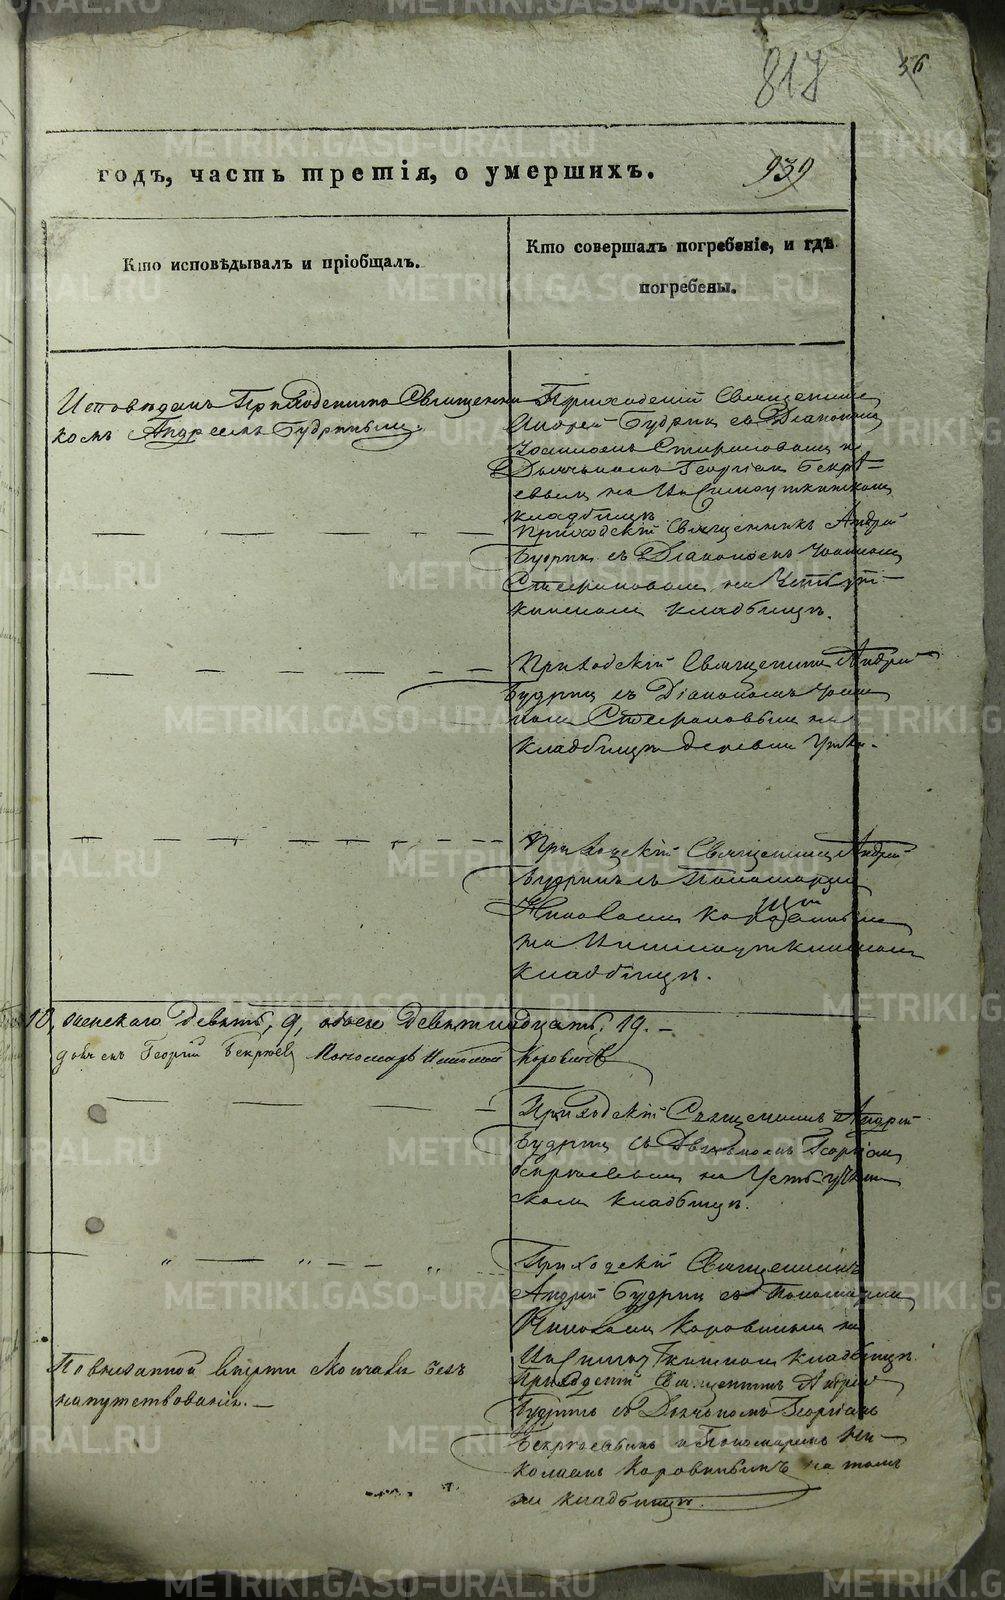 817
36
годъ, часть третія, о умершихъ.
939
Кто исповѣдывалъ и пріобщалъ.
Кто совершалъ погребеніе, и гдѣ
погребены.
Исповѣданъ Приходскимъ Священни
комъ Андреемъ Будринымъ.
Приходскій Священникъ
Андрей Будринъ съ Діакономъ
Іоанномъ Стефановымъ и
Дьячкомъ Георгіемъ
на
кладбищѣ
Приходскій Священникъ Андрей
Будринъ съ Діакономъ Іоанномъ
Стефановымъ на Усть-Ут-
кинскомъ кладбищѣ.
Приходскій Священникъ Андрей
Будринъ съ Діакономъ Іоан
номъ Стефановымъ на
кладбищѣ деревни Утки.
Приходскій Священникъ Андрей
Будринъ съ Пономаремъ
Николаемъ
на
кладбищѣ.
10, женскаго девять, 9, обоего девятнадцать, 19.
Георгій Пономарь Николай Коровинъ
Приходскій Священникъ Андрей
Будринъ съ Дьячкомъ Георгіемъ
на Усть-Уткин
скомъ кладбищѣ.
Приходскій Священникъ
Андрей Будринъ съ Пономаремъ
Николаемъ Коровинымъ на
кладбищѣ.
безъ
напутствованія.
Приходскій Священникъ Андрей
Будринъ съ Дьячкомъ Георгіемъ
и Пономаремъ Ни-
колаемъ Коровинымъ на томъ
же кладбищѣ.
METRIKI.GASO-URAL.RU